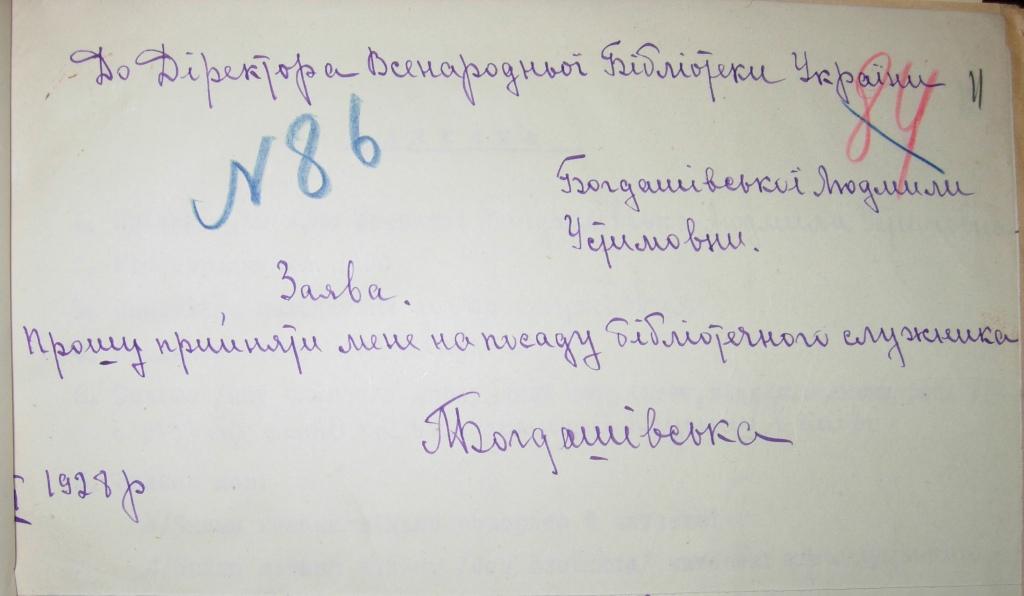 До Діректора Всенародньої Бібліотеки України 11
84
N 86
Богдашівської Людмили
Устимовни.
Заява.
Прошу прийняти мене на посаду бібліотечного служника
Богдашівська
1928 р